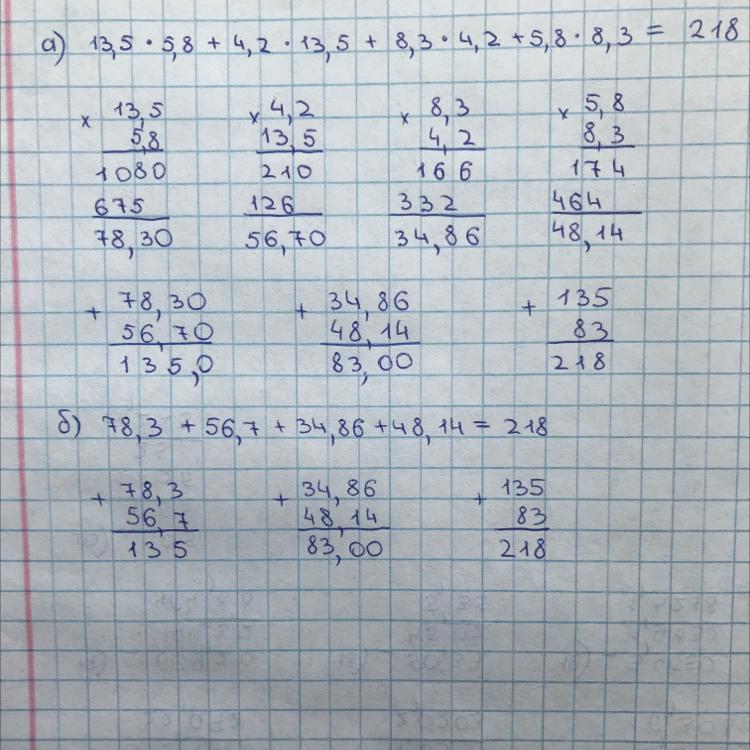 а) 13,5 · 5,8 + 4,2 · 13,5 + 8,3 · 4,2 + 5,8 · 8,3 = 218
× 13,5 × 4,2 × 8,3 × 5,8
5,8 13,5 4,2 8,3
1080 210 166 174
675 126 332 464
78,30 56,70 34,86 48,14
+ 78,30 + 34,86 + 135
56,70 48,14 83
135,0 83,00 218
б) 78,3 + 56,7 + 34,86 + 48,14 = 218
+ 78,3 + 34,86 + 135
56,7 48,14 83
135 83,00 218